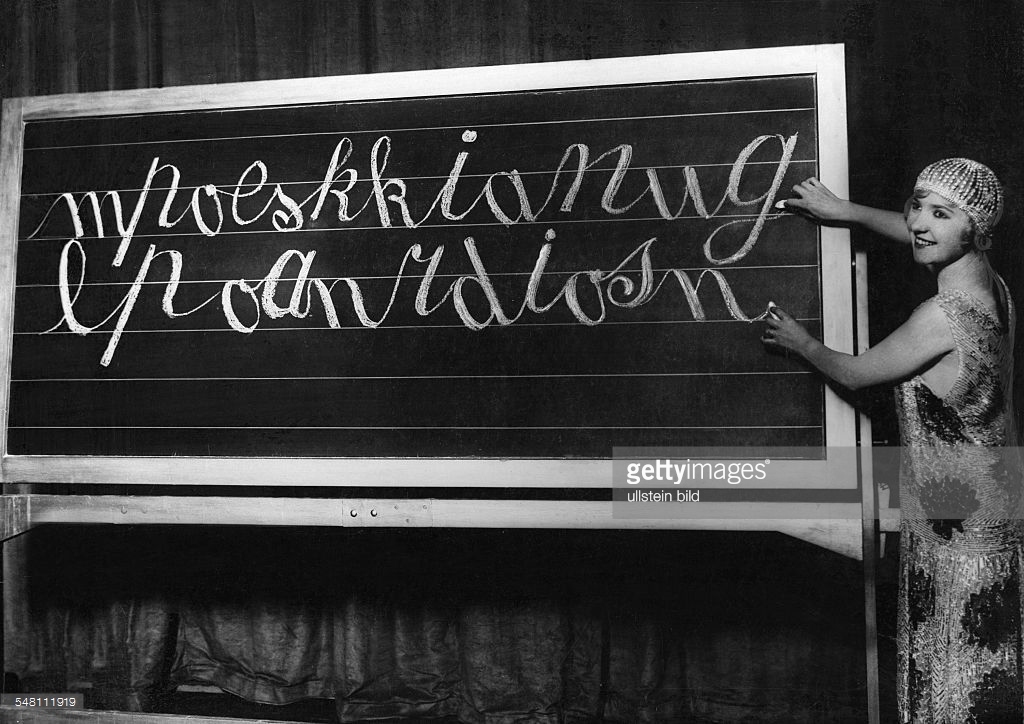 mpoeskkianug
lpoanrdiosn
gettyimages®
ullstein bild
548111919